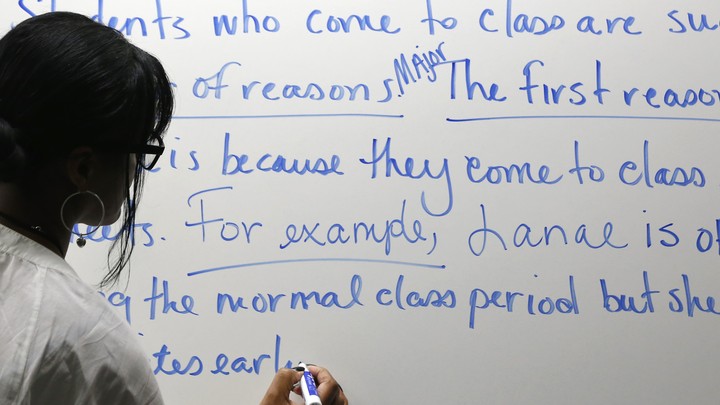 Students who come to class are
of reasons. Major The first reason
is because they come to class
For example, Lanae is
the normal class period but she
early